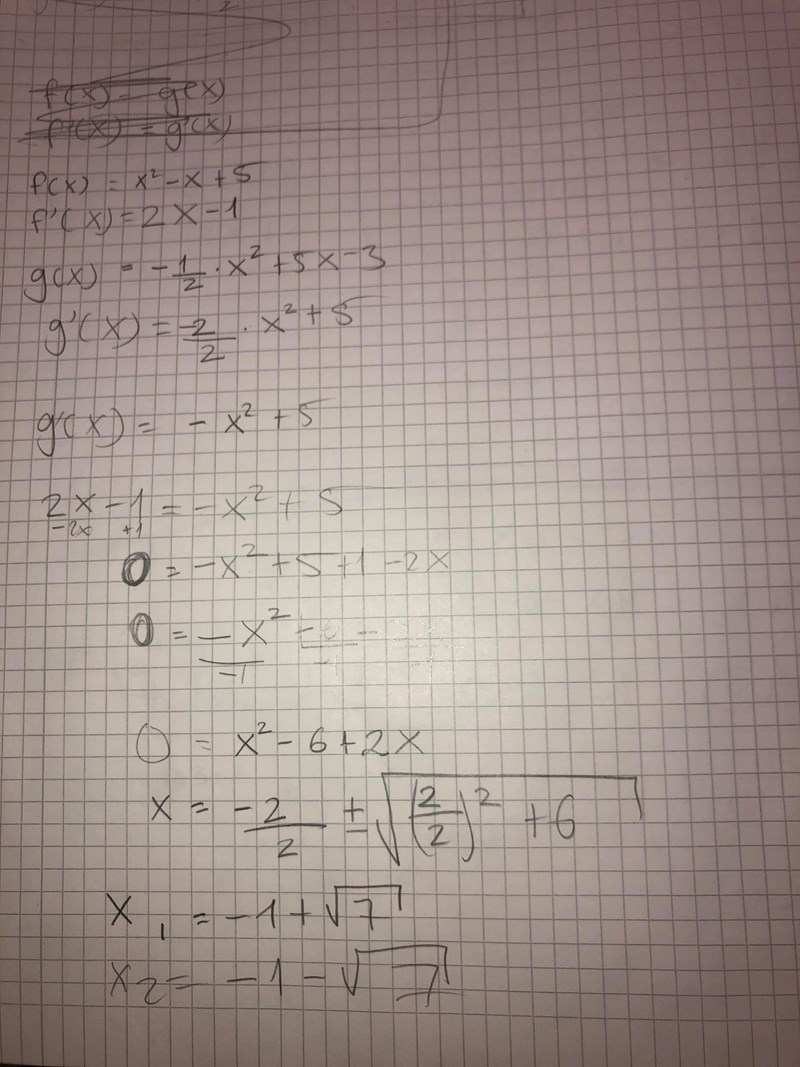 f(x) = g(x)
f'(x) = g'(x)
f(x) = x² - x + 5
f'(x) = 2x - 1
g(x) = -1/2 · x² + 5x - 3
g'(x) = -2/2 · x² + 5
g'(x) = -x² + 5
2x - 1 = -x² + 5
-2x +1
0 = -x² + 5 + 1 - 2x
0 = -x²
-1
0 = x² - 6 + 2x
x = -2/2 ± √((2/2)² + 6)
x₁ = -1 + √7
x₂ = -1 - √7